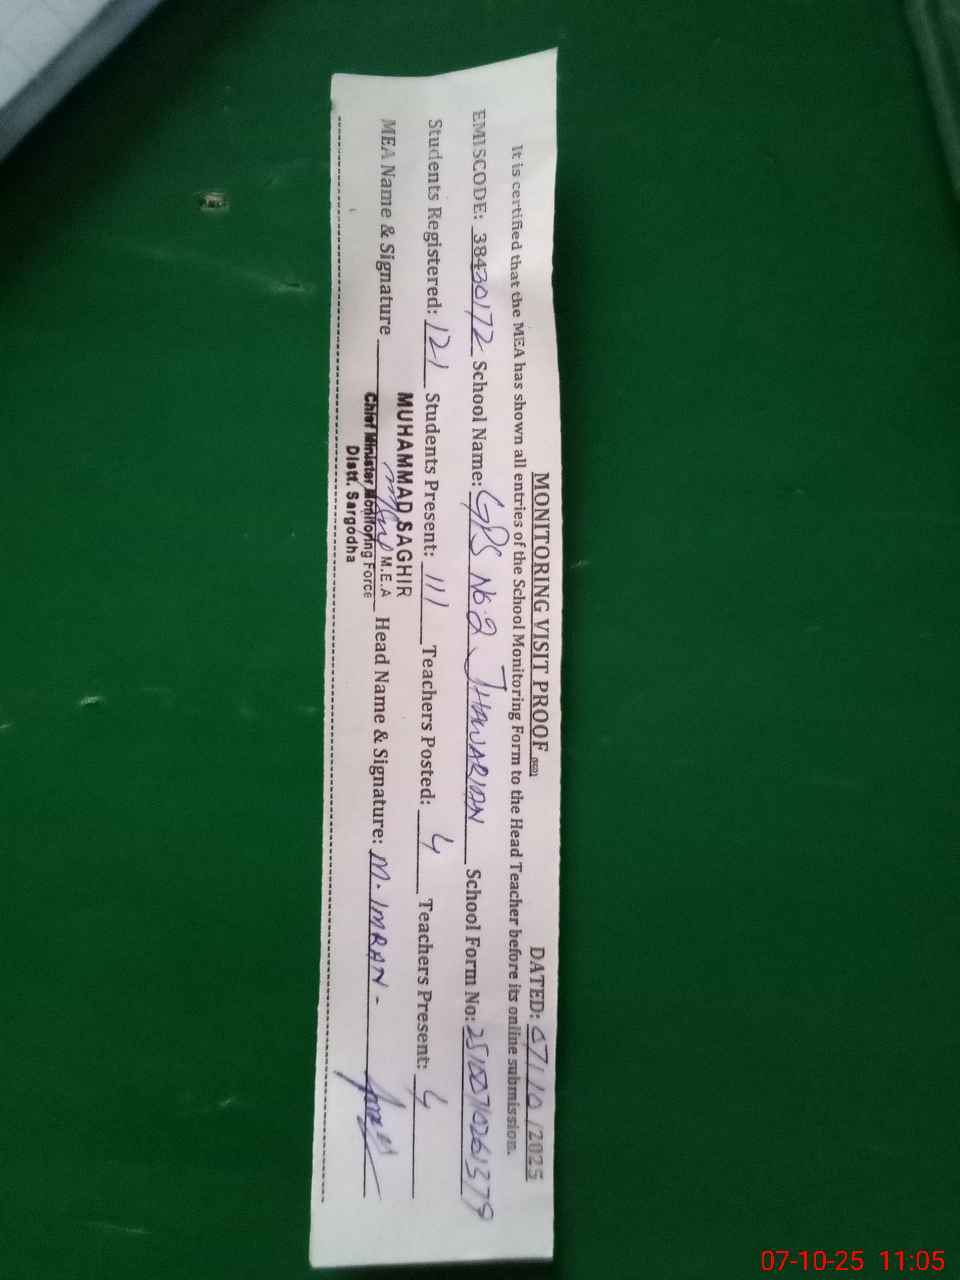 MONITORING VISIT PROOF DATED: 07/10/2025
It is certified that the MEA has shown all entries of the School Monitoring Form to the Head Teacher before its online submission.
EMISCODE: 38430172 School Name: GPS No.2 JHAWARIAN School Form No: 
Students Registered: 121 Students Present: 111 Teachers Posted: 4 Teachers Present: 4
MEA Name & Signature Head Name & Signature: M. IMRAN -
MUHAMMAD SAGHIR
M.E.A
Chief Minister Monitoring Force
Distt. Sargodha
07-10-25 11:05